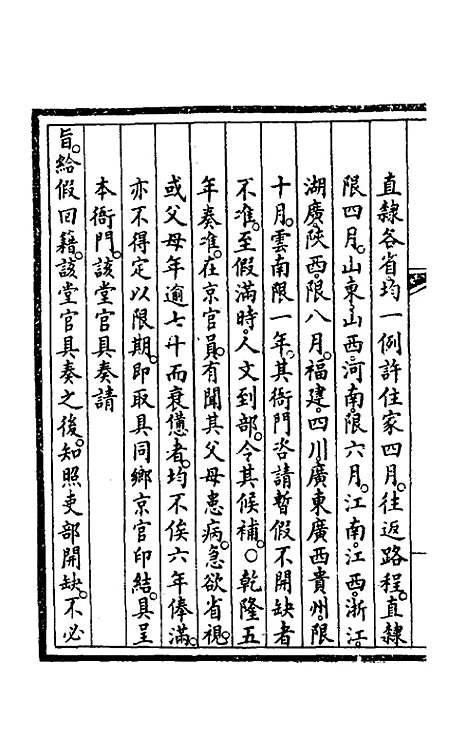 直隸各省。均一例許住家四月。往返路程。直隸
限四月。山東。山西。河南。限六月。江南。江西。浙江。
湖廣。陝西。限八月。福建。四川廣東廣西貴州。限
十月。雲南限一年。其衙門咨請暫假不開缺者
不准。至假滿時。人文到部。令其候補。○乾隆五
年奏准。在京官員。有聞其父母患病。急欲省視。
或父母年逾七十而衰憊者。均不俟六年俸滿。
亦不得定以限期。即取具同鄉京官印結。具呈
本衙門。該堂官具奏請
旨。給假回籍。該堂官具奏之後。知照吏部開缺。不必